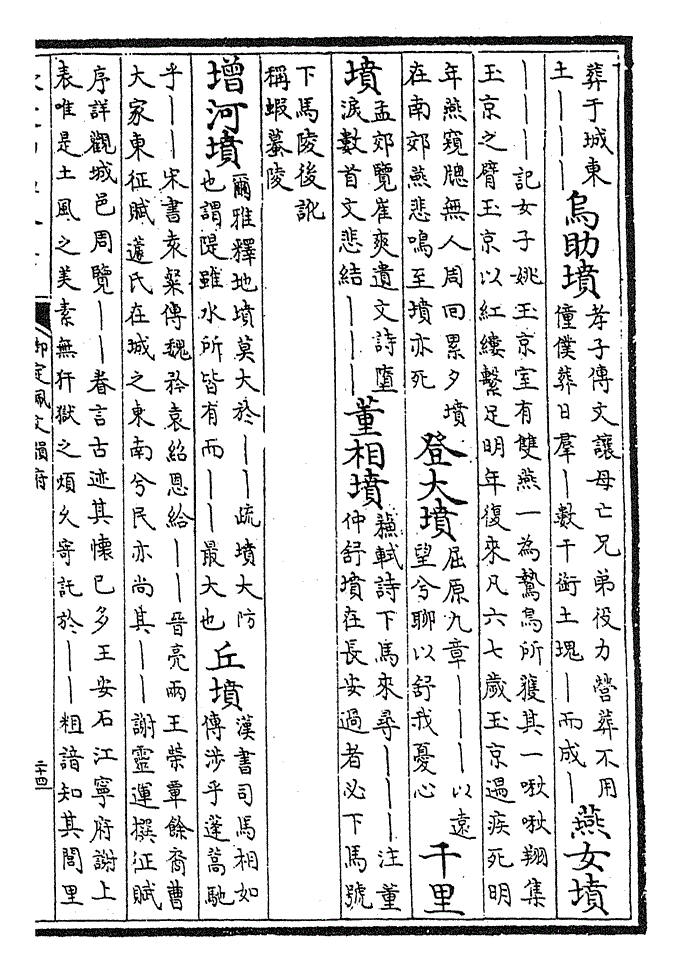 葬于城東
土｜｜｜
烏助墳
孝子傳文讓母亡兄弟役力營葬不用
僮僕葬日羣｜數千銜土塊｜而成｜
燕女墳
｜｜｜記女子姚玉京室有雙燕一為鷙鳥所獲其一啾啾翔集
玉京之臂玉京以紅縷繫足明年復來凡六七歲玉京遇疾死明
年燕窺牕無人周回累夕墳
在南郊燕悲鳴至墳亦死
登大墳
屈原九章｜｜｜以遠
望兮聊以舒我憂心
千里
墳
孟郊覽崔爽遺文詩墮
淚數首文悲結｜｜｜
董相墳
蘇軾詩下馬來尋｜｜｜注董
仲舒墳在長安過者必下馬號
下馬陵後訛
稱蝦蟇陵
增河墳
爾雅釋地墳莫大於｜｜疏墳大防
也謂隄雖水所皆有而｜｜最大也
丘墳
漢書司馬相如
傳涉乎蓬蒿馳
乎｜｜宋書袁粲傳魏矜袁紹恩給｜｜晉亮兩王榮覃餘裔曹
大家東征賦蘧氏在城之東南兮民亦尚其｜｜謝靈運撰征賦
序詳觀城邑周覽｜｜眷言古迹其懷已多王安石江寧府謝上
表唯是土風之美素無犴獄之煩久寄託於｜｜粗諳知其閭里
御定佩文韻府
二十四